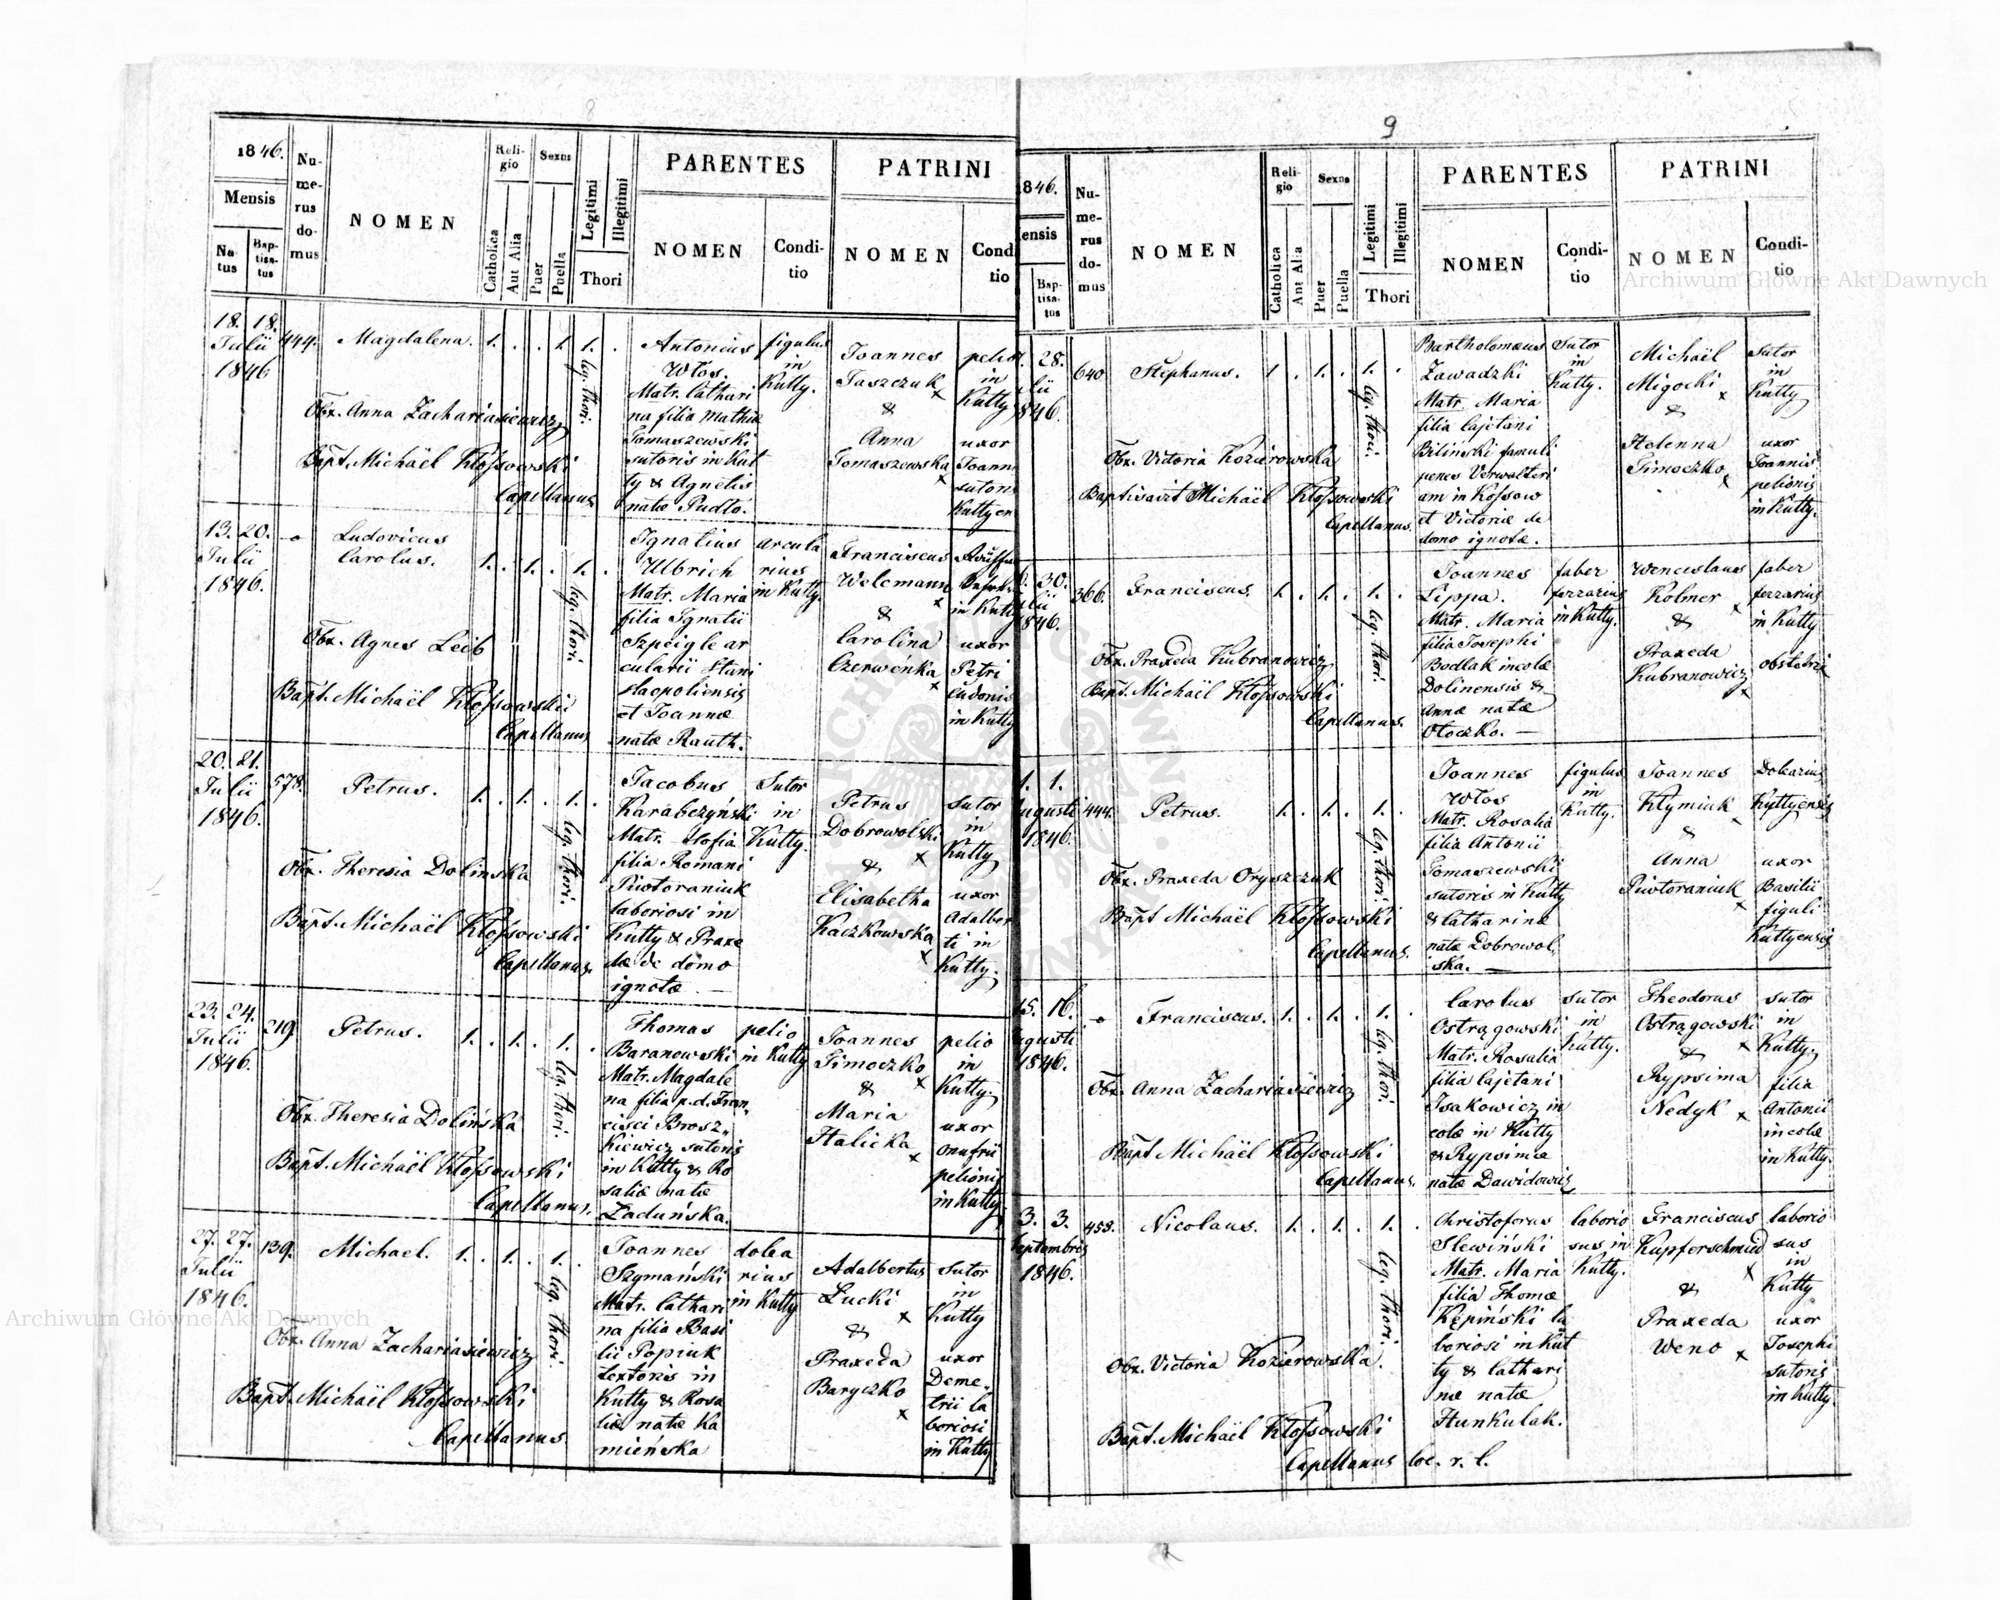 8
1846.
Mensis
Na-
tus
Bap-
tisa-
tus
Nu-
me-
rus
do-
mus
NOMEN
Reli-
gio
Catholica
Aut Alia
Sexus
Puer
Puella
Legitimi
Illegitimi
Thori
PARENTES
NOMEN
Condi-
tio
PATRINI
NOMEN
Cond
tio
18. 18.
Julii
1846
444.
Magdalena.
1. . . 1. 1. .
leg. thori.
Obx. Anna Zachariasiewicz
Bapt. Michaël Kłossowski
Capellanus.
Antonius
Włos.
Matr. Cathari
na filia Mathiæ
Tomaszewski
sutoris in Kut
ty & Agnetis
natæ Pudło.
figulus
in
Kutty.
Joannes
Jaszczuk
x
&
Anna
Tomaszewska
x
pelio
in
Kutty
uxor
Joann
sutoris
Kuttyen
13. 20.
Julii
1846.
Ludovicus
Carolus.
1. . 1. . 1. .
leg. thori.
Obx. Agnes Leib
Bapt. Michaël Kłossowski
Capellanus
Ignatius
Ulbrich
Matr. Maria
filia Ignatii
Szpeigle ar
cularii Stani
slaopoliensis
et Joannæ
natæ Rauth.
arcula
rius
in Kutty.
Franciscus
Welcmann
x
&
Carolina
Czerwenka
x
in Kutt
uxor
Petri
ludonis
in Kutty
20. 21.
Julii
1846.
578.
Petrus.
1. . 1. . 1. .
leg. thori.
Obx. Theresia Dolinska
Bapt. Michaël Kłossowski
Capellanus.
Jacobus
Karabczyński
Matr. Zofia
filia Romani
Piwtoraniuk
laboriosi in
Kutty & Praxe
dæ de domo
ignotæ —
Sutor
in
Kutty.
Petrus
Dobrowolski
x
&
Elisabetha
Kaczkowska
x
sutor
in
Kutty
uxor
Adalber
ti in
Kutty.
23. 24.
Julii
1846.
219
Petrus.
1. . 1. . 1. .
leg. thori.
Obx. Theresia Dolińska
Bapt. Michaël Kłossowski
Capellanus.
Thomas
Baranowski
Matr. Magdale
na filia p.d. Fran
cisci Brosz„
Kiewicz sutoris
in Kutty & Ro
saliæ natæ
Zaduńska.
pelio
in Kutty
Joannes
Timoczko
x
&
Maria
Halicka
x
pelio
in
Kutty.
uxor
onufrii
pelionis
in Kutty.
27. 27.
Julii
1846.
139.
Michael.
1. . 1. . 1. .
leg. thori
Obx. Anna Zachariasiewicz
Bapt. Michaël Kłossowski
Capellanus
Joannes
Szymański
Matr. Cathari
na filia Basi
lii Popiuk
textoris in
Kutty & Rosa
liæ natæ Ka
mieńska
dolea
rius
in Kutty
Adalbertus
Lucki
x
&
Praxeda
Baryczko
x
Sutor
in
Kutty
uxor
Deme„
trii la
boriosi
in Kutty
9
1846.
ensis
Bap-
tisa-
tus
Nu-
me-
rus
do-
mus
NOMEN
Reli-
gio
Catholica
Aut Alia
Sexus
Puer
Puella
Legitimi
Illegitimi
Thori
PARENTES
NOMEN
Condi-
tio
PATRINI
NOMEN
Condi-
tio
28.
lii
1846.
640
Stephanus.
1 . 1. . 1. .
leg. thori.
Obx. Victoria Kozierowska
Baptisavit Michaël Kłossowski
Capellanus.
Bartholomæus
Zawadzki
Matr. Maria
filia Cajetani
Biliński famuli
penes Verwalteri
am in Kossow
et Victoriæ de
domo ignotæ.
Sutor
in
Kutty.
Michaël
Migocki
x
&
Helenna
Timoczko
x
sutor
in
Kutty
uxor
Joannis
pelionis
in Kutty.
30.
lii
1846.
366.
Franciscus.
1. . 1. . 1. .
leg. thori.
Obx. Praxeda Kubranowicz
Bapt. Michaël Kłossowski
Capellanus.
Joannes
Lippa.
Matr. Maria
filia Josephi
Bodlak incolæ
Dolinensis &
Annæ natæ
Otoczko. —
faber
ferrarius
in Kutty.
Wenceslaus
Kolmer
x
&
Praxeda
Kubranowicz
x
faber
ferrarius
in Kutty
obstetrix
1. 1.
ugusti
1846.
444.
Petrus.
1. . 1. . 1. .
leg. thori.
Obx. Praxeda Oryszczuk
Bapt Michaël Kłossowski
Capellanus.
Joannes
Włos
Matr. Rosalia
filia Antonii
Tomaszewski
sutoris in Kutty
& Catharinæ
natæ Dobrowol
ska. —
figulus
in
Kutty.
Joannes
Kłymiuk
x
&
Anna
Piwtoraniuk
x
Dolearius
Kyttyensis
uxor
Basilii
figuli
Kuttyensis
15. 16.
ugusti
1846.
Franciscus.
1. . 1. . 1. .
leg. thori
Obx. Anna Zachariasiewicz
Bapt Michaël Kłossowski
Capellanus.
Carolus
Ostrągowski
Matr. Rosalia
filia Cajetani
Isakowicz in
colæ in Kutty
& Rypsimæ
natæ Dawidowicz
sutor
in
Kutty.
Theodorus
Ostrągowski
x
&
Rypsima
Nedyk x
sutor
in
Kutty.
filia
Antonii
incolæ
in Kutty.
3. 3.
eptembris
1846.
458.
Nicolaus.
1. . 1. . 1. .
leg. thori.
Obx. Victoria Kozierowska.
Bapt. Michaël Kłossowski
Capellanus loc. r. l.
Christoforus
Slewiński
Matr. Maria
filia Thomæ
Kępiński la
boriosi in Kut
ty & Cathari
næ natæ
Hunkulak.
laborio
sus in
Kutty.
Franciscus
Kupferschmied
x
&
Praxeda
Weno x
laborio
sus
in
Kutty
uxor
Josephi
sutoris
in Kutty.
Archiwum Główne Akt Dawnych
Archiwum Główne Akt Dawnych